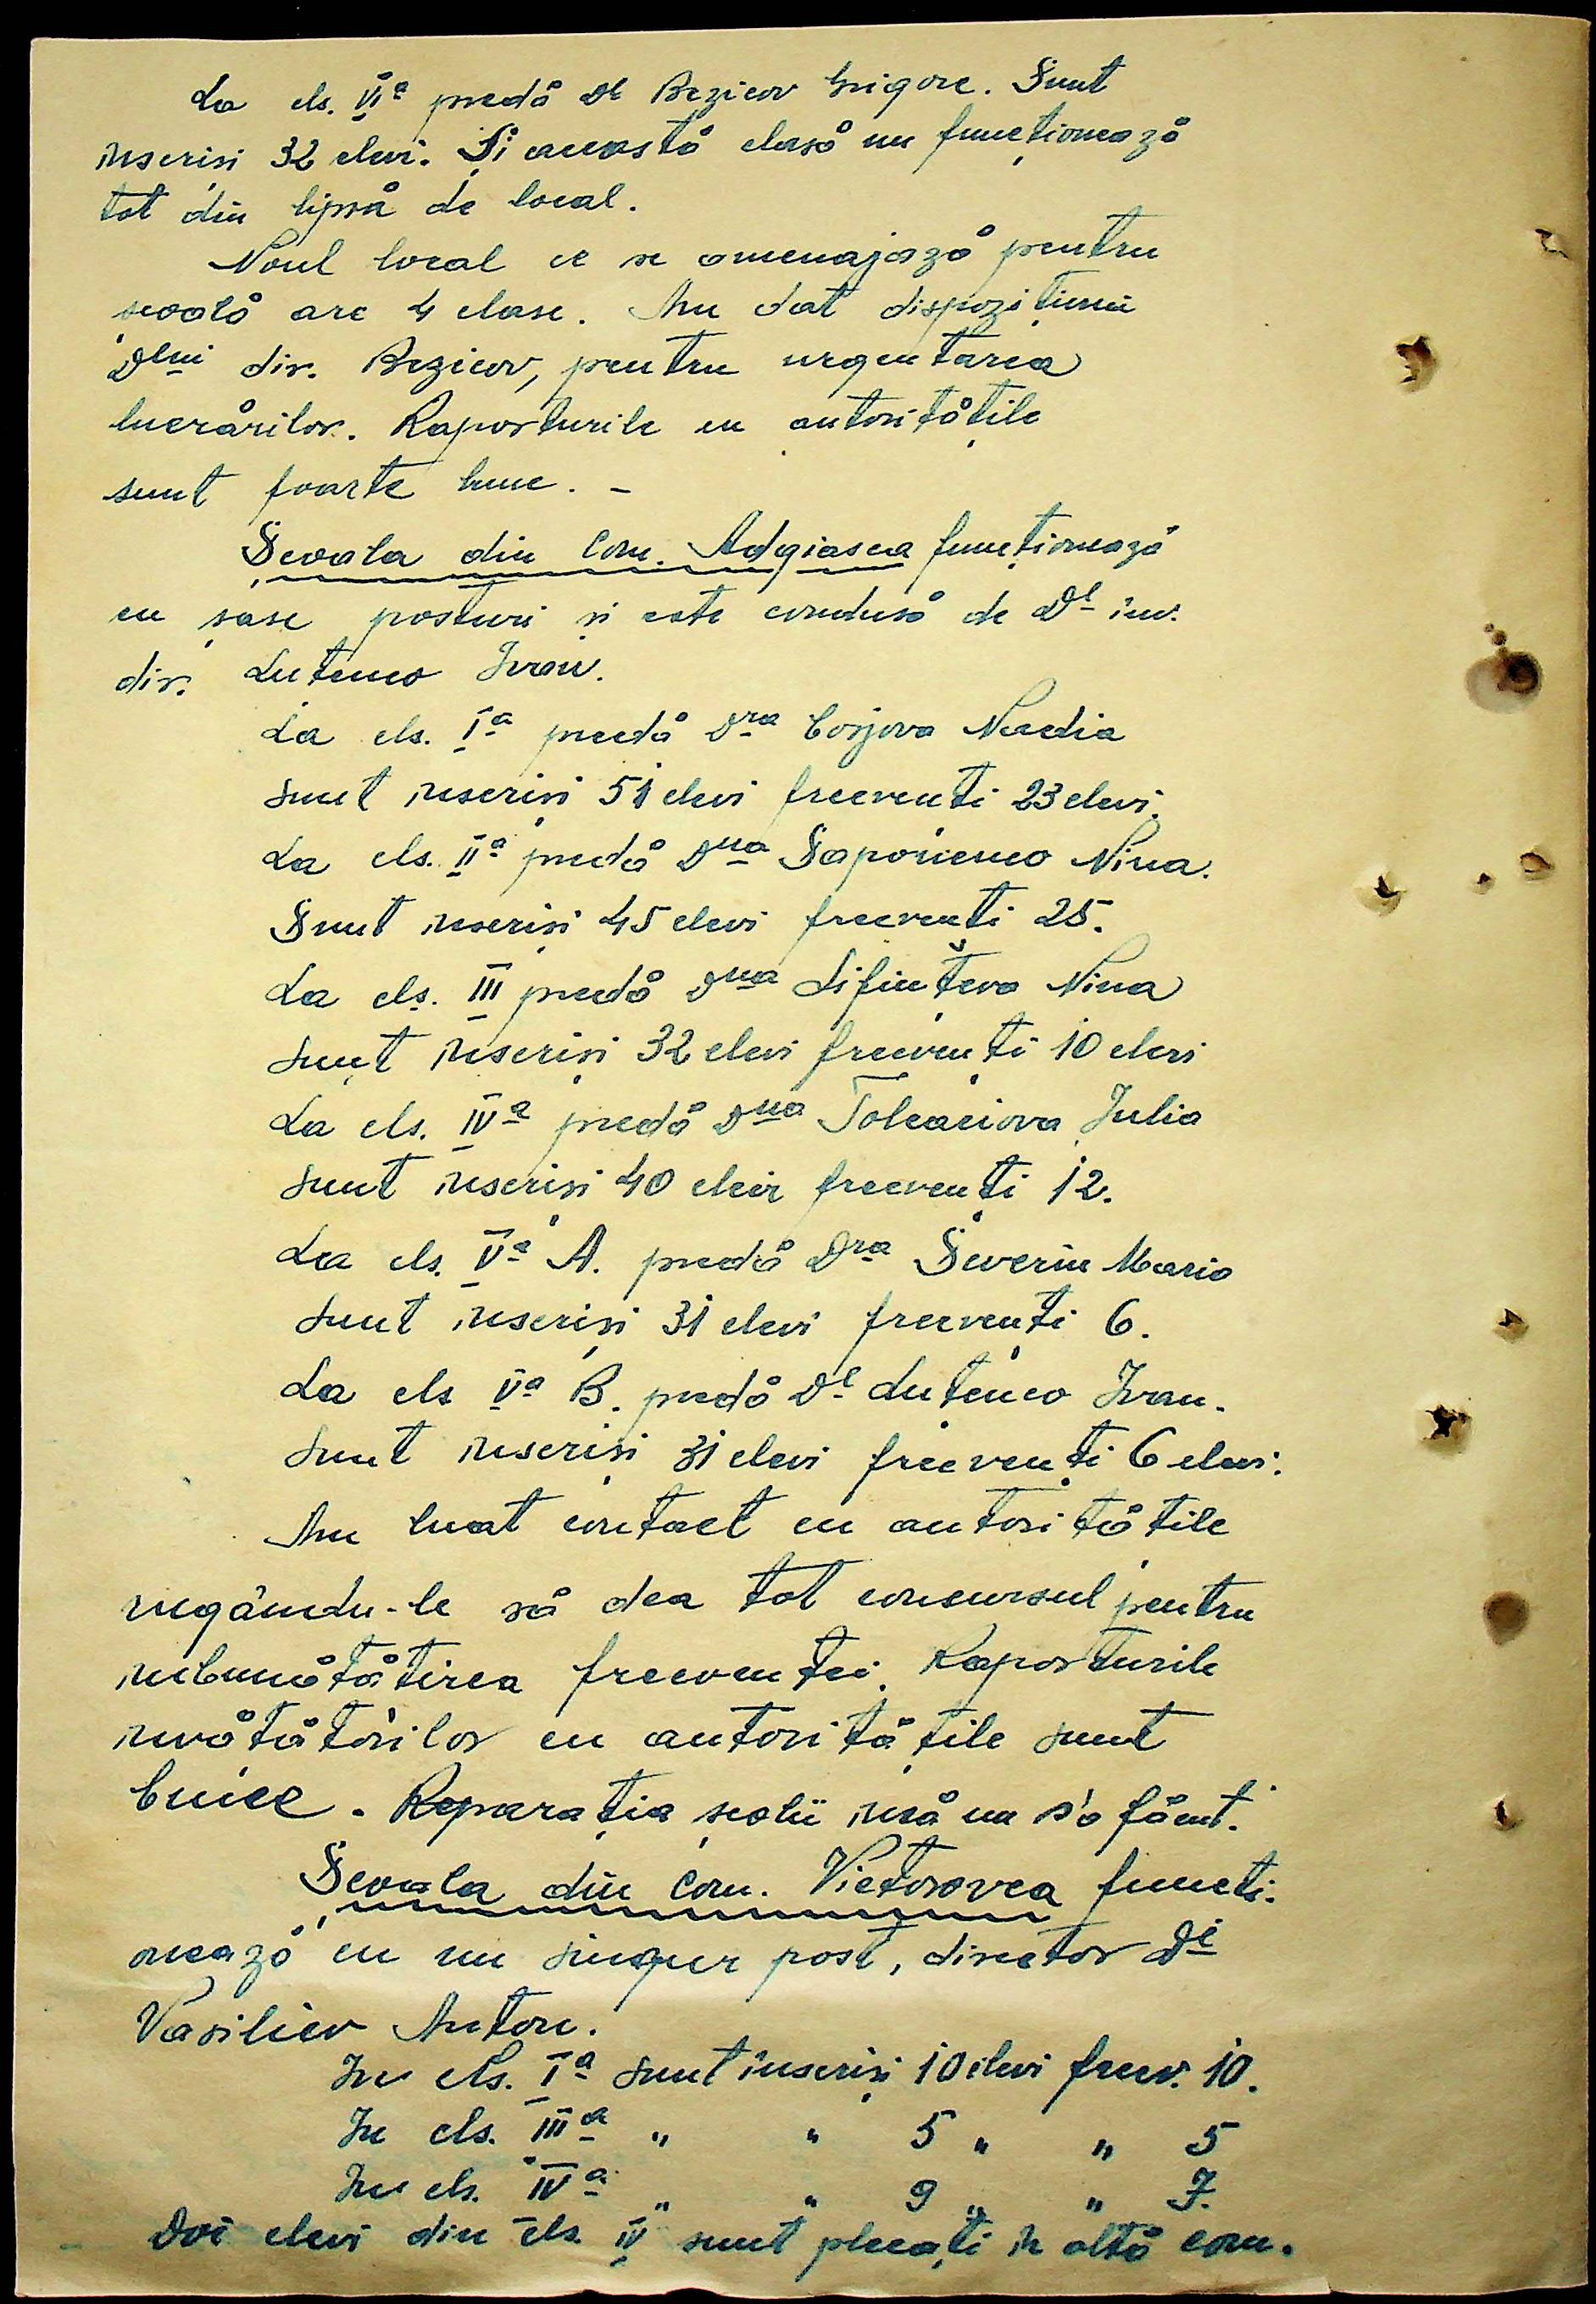 La cls. VIa predă Dl Bezicov Grigore. Sunt
înscriși 32 elevi. Și această clasă nu funcționează
tot din lipsă de local.
Noul local ce se amenajază pentru
școală are 4 clase. Am dat dispozițiuni
Dlui dir. Bezicov, pentru urgentarea
lucrărilor. Raporturile cu autoritățile
sunt foarte bune. -
Școala din Com. Adgiasca funcționează
cu șase posturi și este condusă de Dl înv.
dir. Lutenco Ivan.
La cls. Ia predă Dra Cosjova Nadia
sunt înscriși 51 elevi frecvenți 23 elevi.
La cls. IIa predă Dna Saponenco Nina.
Sunt înscriși 45 elevi frecvenți 25.
La cls. III predă Dna Lifințeva Nina
sunt înscriși 32 elevi frecvenți 10 elevi
La cls. IVa predă Dna Tolcaciova Julia
sunt înscriși 40 elevi frecvenți 12.
La cls. Va A. predă Dra Severin Maria
sunt înscriși 31 elevi frecvenți 6.
La cls Va B. predă Dl Lutenco Ivan.
Sunt înscriși 31 elevi frecvenți 6 elevi.
Am luat contact cu autoritățile
rugându-le să dea tot concursul pentru
îmbunătățirea frecvenței. Raporturile
învățătorilor cu autoritățile sunt
bune. Reparația școlii însă nu s'a făcut.
Școala din Com. Victorovca functi-
onează cu un singur post, director Dl
Vasiliev Anton.
In cls. Ia sunt înscriși 10 elevi frecv. 10.
In cls. IIIa „ „ 5 „ „ 5
In cls. IVa „ „ 9 „ „ 7.
Doi elevi din cls. IV sunt plecați în altă com.